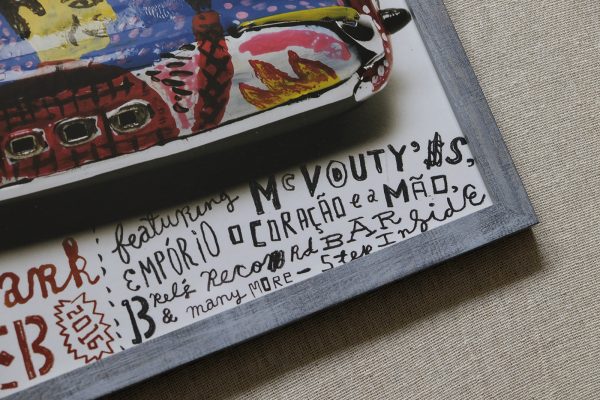 featuring McVOUTY'$S,
EMPÓRIO O CORAÇÃO e a MÃO,
Brel's RECORD BAR
& many MORE – STEP Inside
ark
EB
2016